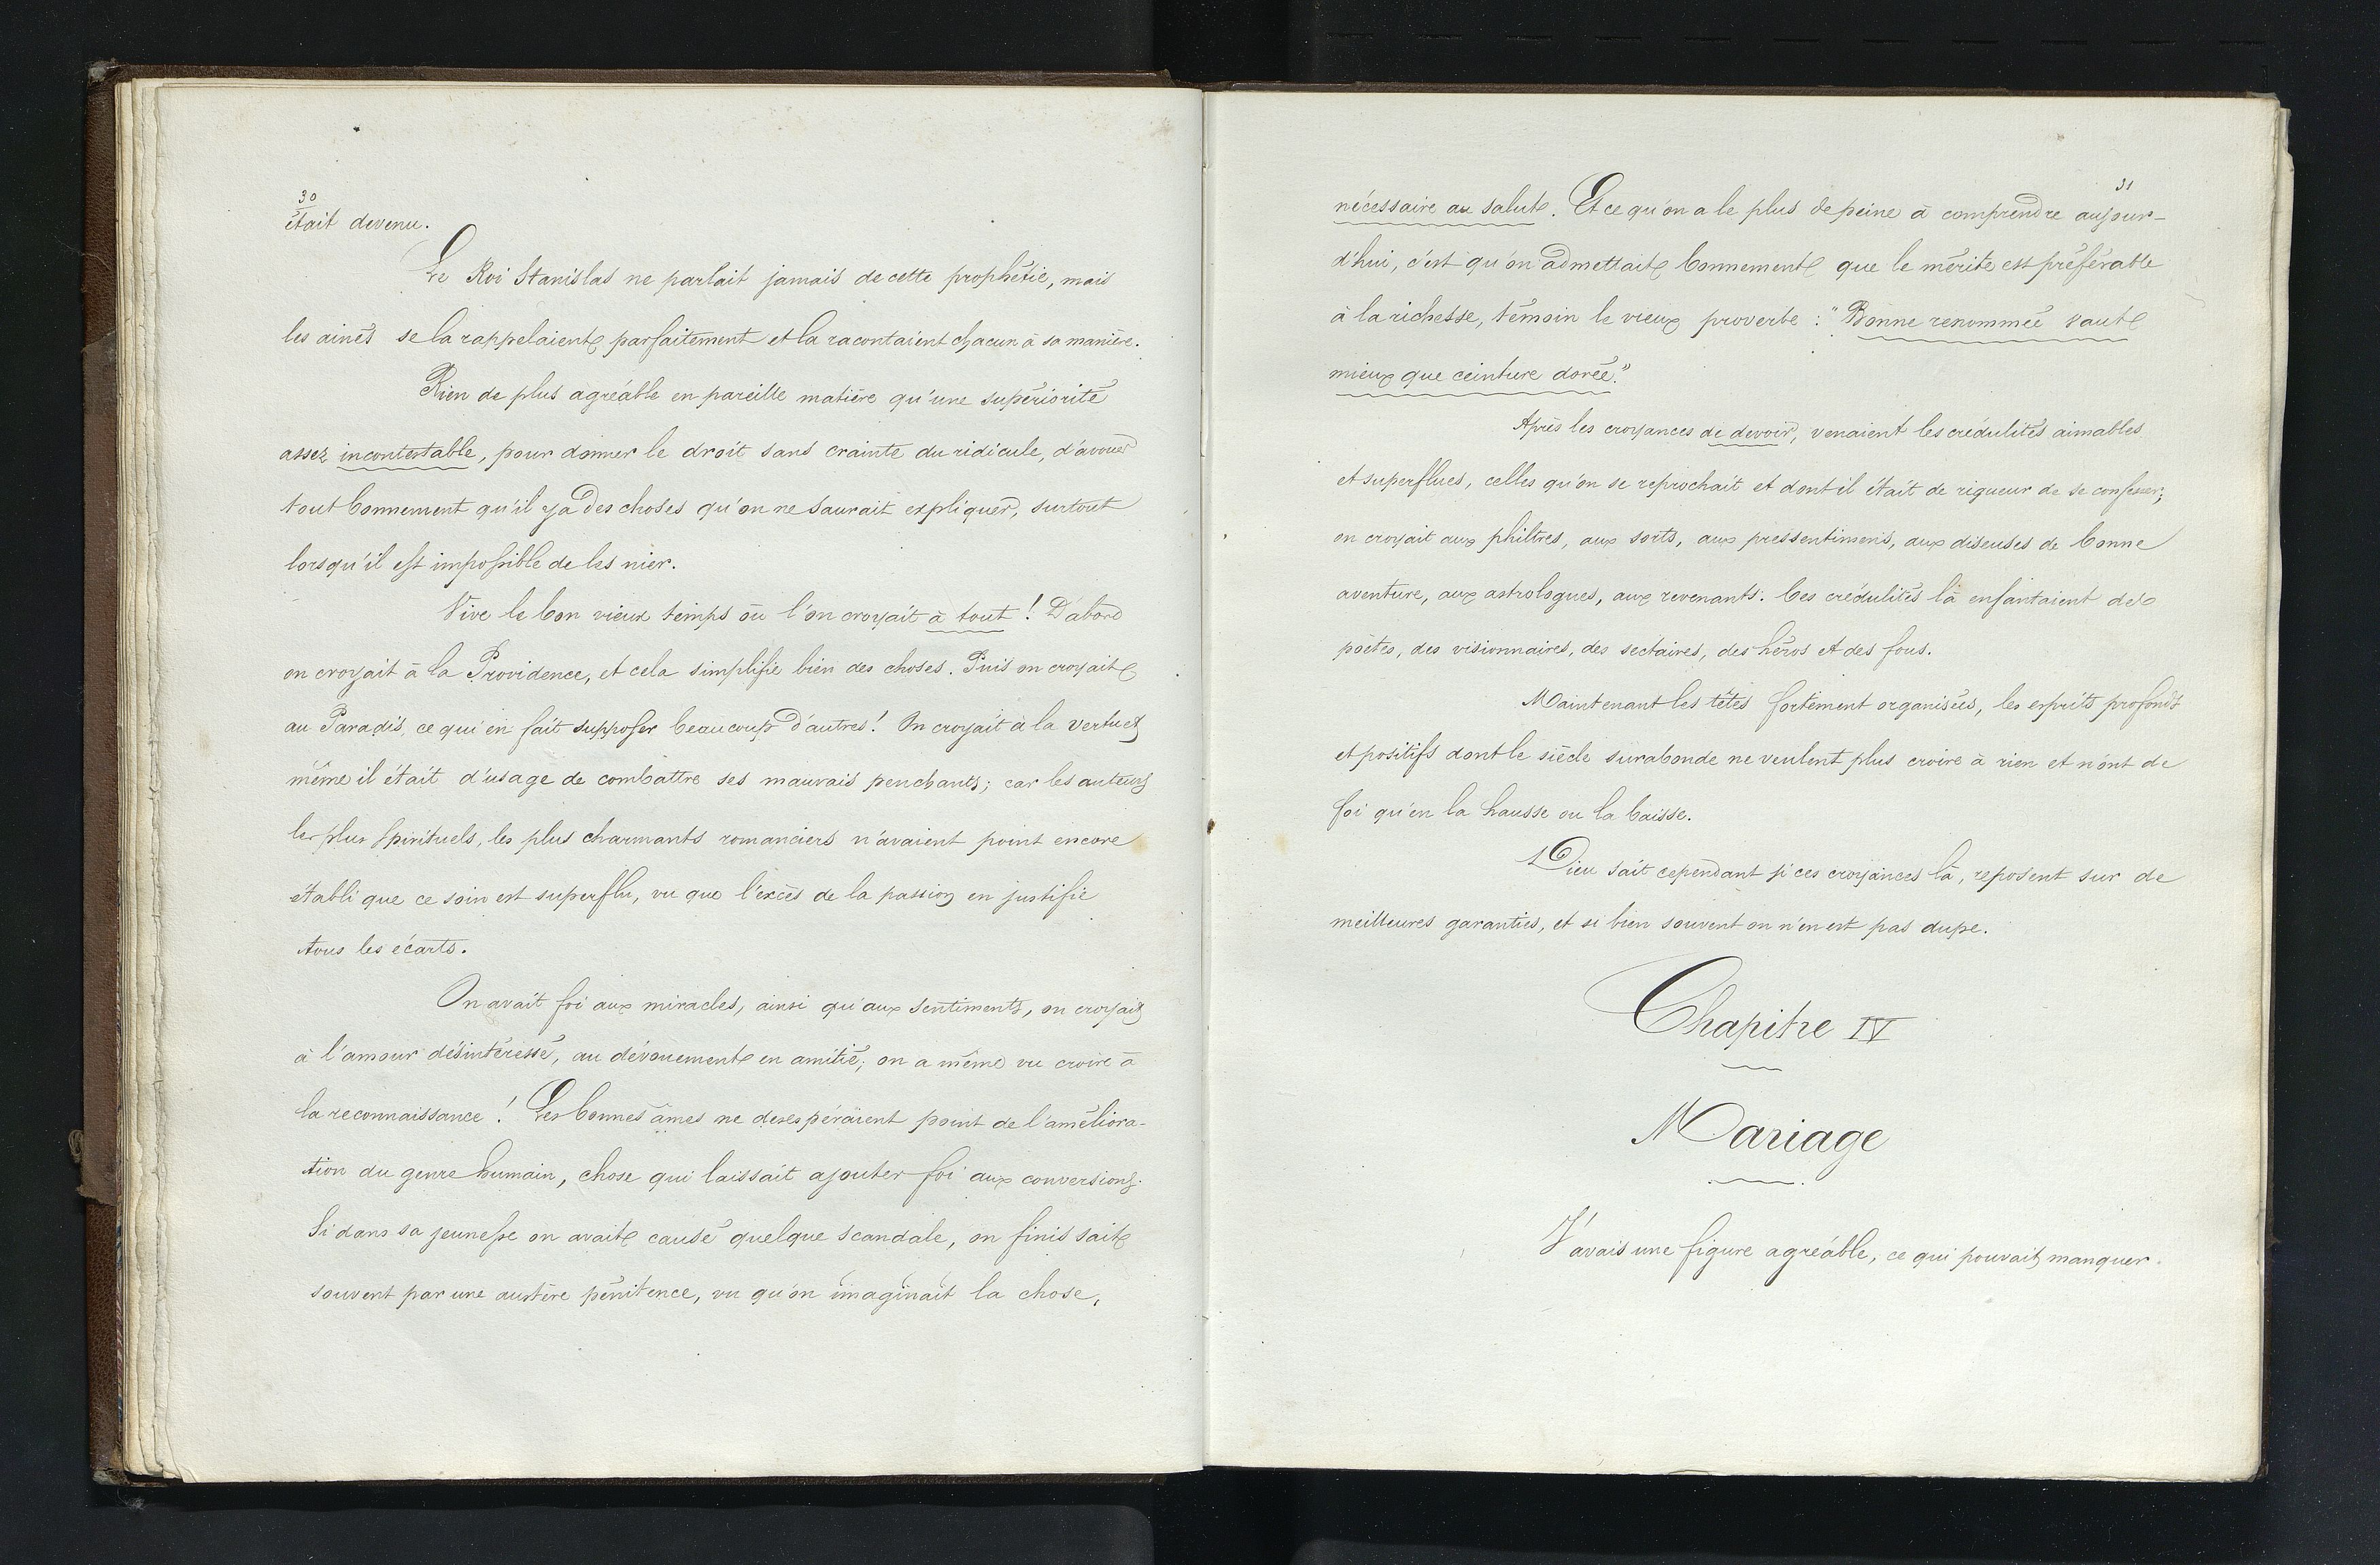 30
était devenu.
Le Roi Stanislas ne parlait jamais de cette prophétie, mais
les ainés se la rappelaient parfaitement et la racontaient chacun à sa manière.
Rien de plus agréable en pareille matière qu'une supériorité
assez incontestable, pour donner le droit sans crainte du ridicule, d'avouer
tout bonnement qu'il y a des choses qu'on ne saurait expliquer, surtout
lorsqu'il est impossible de les nier.
Vive le bon vieux temps où l'on croyait à tout ! D'abord
on croyait à la Providence, et cela simplifie bien des choses. Puis on croyait
au Paradis, ce qui en fait supposer beaucoup d'autres ! On croyait à la vertu et
même il était d'usage de combattre ses mauvais penchants ; car les auteurs
les plus spirituels, les plus charmants romanciers n'avaient point encore
établi que ce soin est superflu, vu que l'excès de la passion en justifie
tous les écarts.
On avait foi aux miracles, ainsi qu'aux sentiments, on croyait
à l'amour désintéressé, au dévouement en amitié ; on a même vu croire à
la reconnaissance ! Les bonnes âmes ne deses péraient point de l'améliora-
tion du genre humain, chose qui laissait ajouter foi aux conversions.
Si dans sa jeunesse on avait causé quelque scandale, on finissait
souvent par une austère pénitence, vu qu'on imaginait la chose,
31
nécessaire au salut. Et ce qu'on a le plus de peine à comprendre aujour-
d'hui, c'est qu'on admettait bonnement que le mérite est préférable
à la richesse, témoin le vieux proverbe : "Bonne renommée vaut
mieux que ceinture dorée."
Après les croyances de devoir, venaient les crédulités aimables
et superflues, celles qu'on se reprochait et dont il était de rigueur de se confesser ;
on croyait aux philtres, aux sorts, aux pressentimens, aux diseuses de bonne
aventure, aux astrologues, aux revenants. Ces crédulités là enfantaient des
poètes, des visionnaires, des sectaires, des héros et des fous.
Maintenant les têtes fortement organisées, les esprits profonds
et positifs dont le siècle surabonde ne veulent plus croire à rien et n'ont de
foi qu'en la hausse ou la baisse.
Dieu sait cependant si ces croyances là, reposent sur de
meilleures garanties, et si bien souvent on n'en est pas dupe.
Chapitre IV
Mariage
J'avais une figure agréable, ce qui pouvait manquer